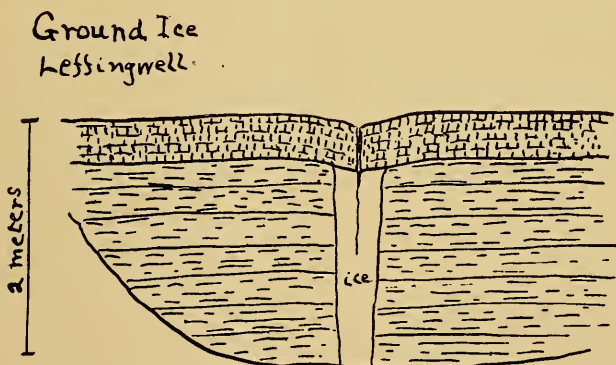 Ground Ice
Leffingwell.
2 meters
ice